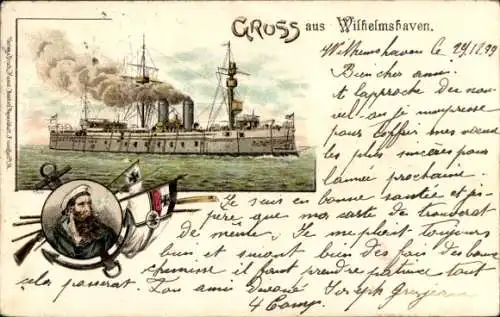 GRUSS aus Wilhelmshaven.
Wilhelmshaven le 29/12 99
Bien cher ami
A l'approche du nou-
vel an je m'empresse
pour t'offrir mes voeux
les plus sincères pour
l'année prochaine.
Je suis en bonne santée et j'es-
père que ma carte te trouverat
de même. Je me plait toujours
bien et surtout bien des fois des
il faut prendre patience tout
cela passerat. Ton ami Joseph
4 Comp.